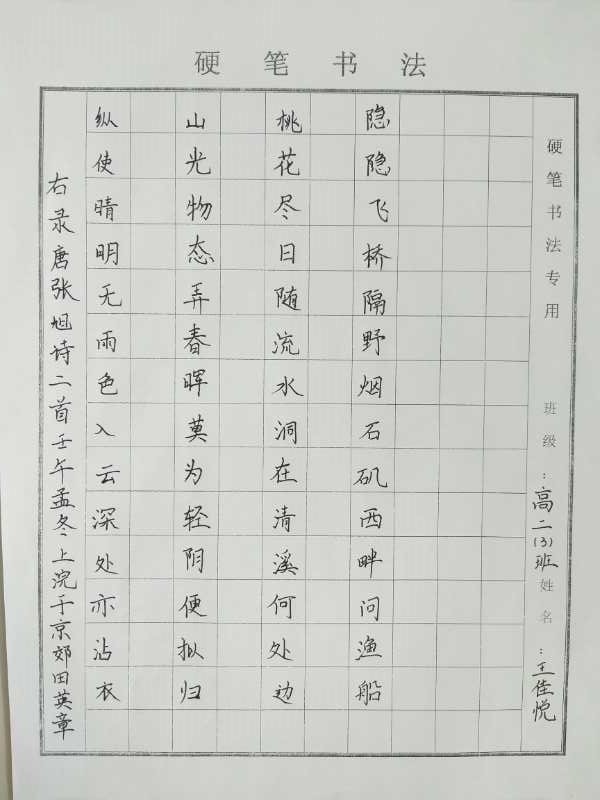 硬笔书法
硬笔书法专用 班级：高二(3)班 姓名：王佳悦
隐隐飞桥隔野烟石矶西畔问渔船
桃花尽日随流水洞在清溪何处边
山光物态弄春晖莫为轻阴便拟归
纵使晴明无雨色入云深处亦沾衣
右录唐张旭诗二首壬午孟冬上浣于京郊田英章